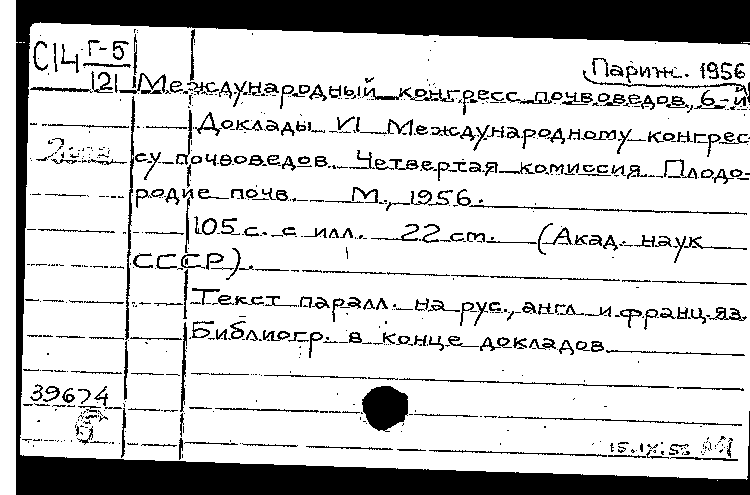 С14 Г-5
121
Париж. 1956
Международный конгресс почвоведов, 6-й
Доклады VI Международному конгрес-
су почвоведов. Четвертая комиссия. Плодо-
родие почв. М., 1956.
105 с. с илл. 22 см. (Акад. наук
СССР).
Текст паралл. на рус., англ. и франц. яз.
Библиогр. в конце докладов.
39674
Б